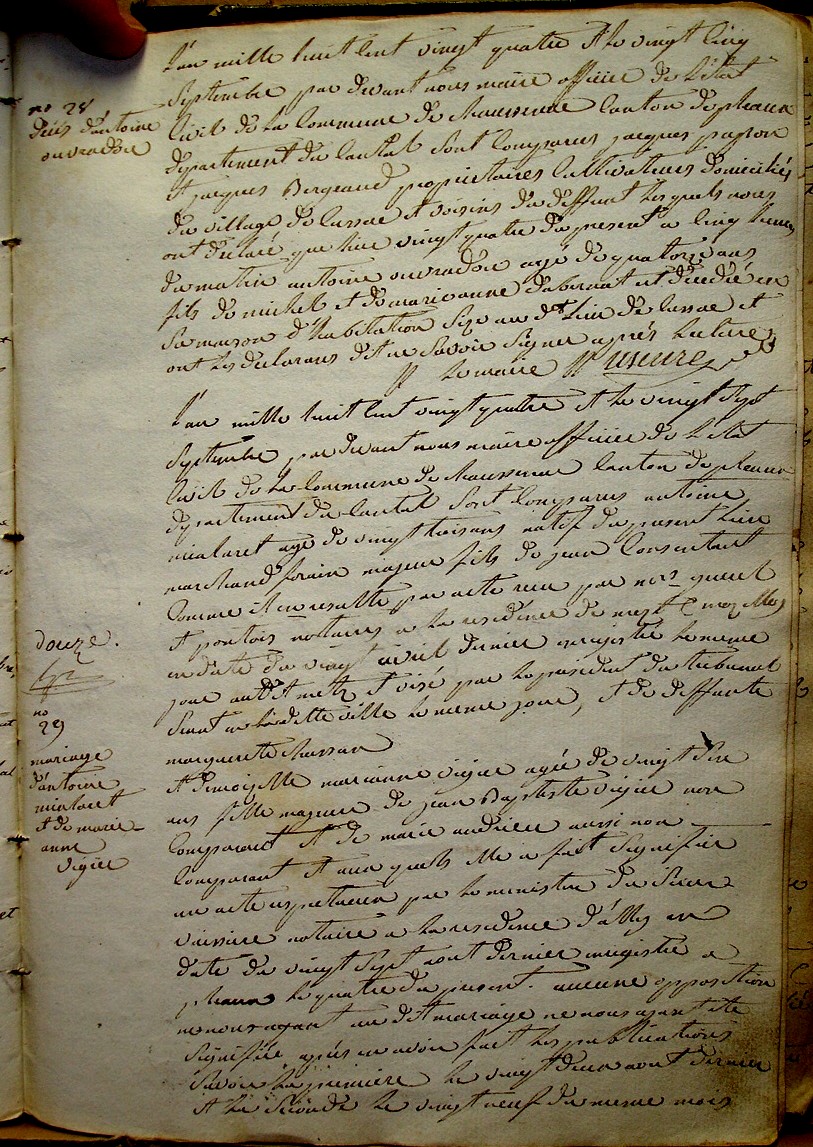 no 28
déces d'antoine
ouvradou
L'an mille huit cent vingt quatre et le vingt cinq
Septembre par devant nous maire officier de L'état
Civil de la Commune de Chaussenac Canton de pleaux
departement du Cantal Sont Comparus jacques
et jacques Bergeaud propriétaires Cultivateurs domiciliés
du village de Cussac et voisins du deffunt Lesquels nous
ont declaré que hier vingt quatre du present a Cinq heures
du matin antoine ouvradou agé de quatorze ans
fils de michel et de marie anne est décédé en
Sa maison d'habitation Size au dt Lieu de Cussac et
ont les declarans dit ne Savoir Signer aprés Lecture
Le maire
L'an mille huit cent vingt quatre et le vingt Sept
Septembre par devant nous maire officier de L'état
Civil de la Commune de Chaussenac Canton de pleaux
departement du Cantal Sont Comparus antoine
mialaret agé de vingt trois ans natif du present Lieu
marchand forain majeur fils de jean Consentant
Comme il en resulte par acte recu par
et pontois notaires a la residence de metz
en date du vingt avril dernier enregistré le meme
jour audit metz et visé par le president du tribunal
Seant a Ladette ville le meme jour, et de deffunte
marguerite Chassan
Et demoiselle marianne vigier agée de vingt
ans fille majeure de jean Baptiste vigier non
Comparant et de marie andrieu aussi non
Comparant et aux quels elle a fait Signifier
un acte respectueux par le ministre du Sieur
vaissiere notaire a la residence d'ally en
date du vingt Sept aout dernier enregistré a
pleaux le quatre du present. aucune opposition
au dit mariage ne nous ayant été
Signifiée aprés en avoir fait les publications
Savoir la premiere le vingt deux aout dernier
et la Seconde le vingt neuf du meme mois
douze.
no
29
mariage
d'antoine
mialaret
et de marie
anne
vigier